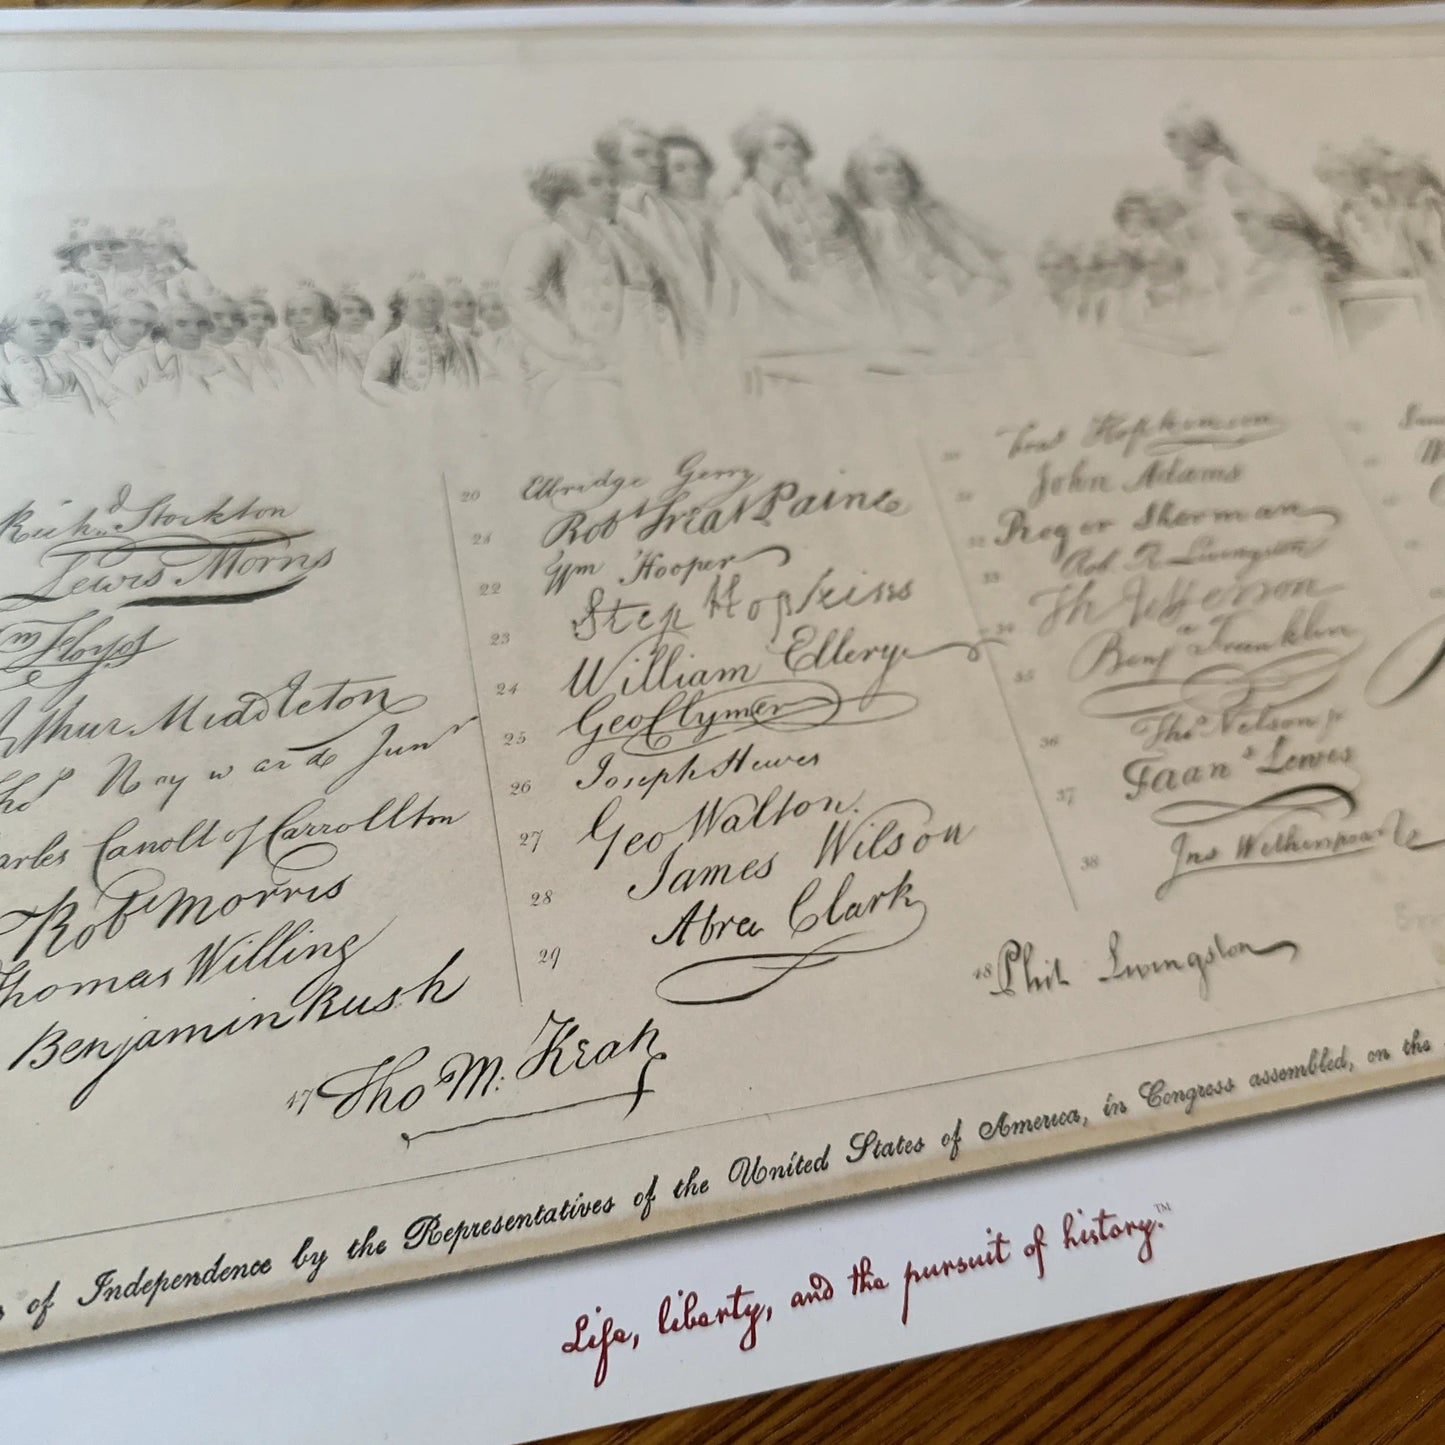 Rich.d Stockton
Lewis Morris
m Floyd
Arthur Middleton
Tho.s Heyward Jun.r
arles Carroll of Carrollton
Rob.t Morris
Thomas Willing
Benjamin Rush
47 Tho M: Kean
20 Elbridge Gerry
21 Rob.t Treat Paine
22 Wm Hooper
23 Step Hopkins
24 William Ellery
25 Geo Clymer
26 Joseph Hewes
27 Geo Walton.
28 James Wilson
29 Abra Clark
Fra.s Hopkinson
John Adams
Roger Sherman
33 Rob R Livingston
34 Th Jefferson
35 Benj.a Franklin
36 Tho.s Nelson jr
37 Fran.s Lewis
38 Jno Witherspoon
48 Phil. Livingston
of Independence by the Representatives of the United States of America, in Congress assembled, on the
Life, liberty, and the pursuit of history.™